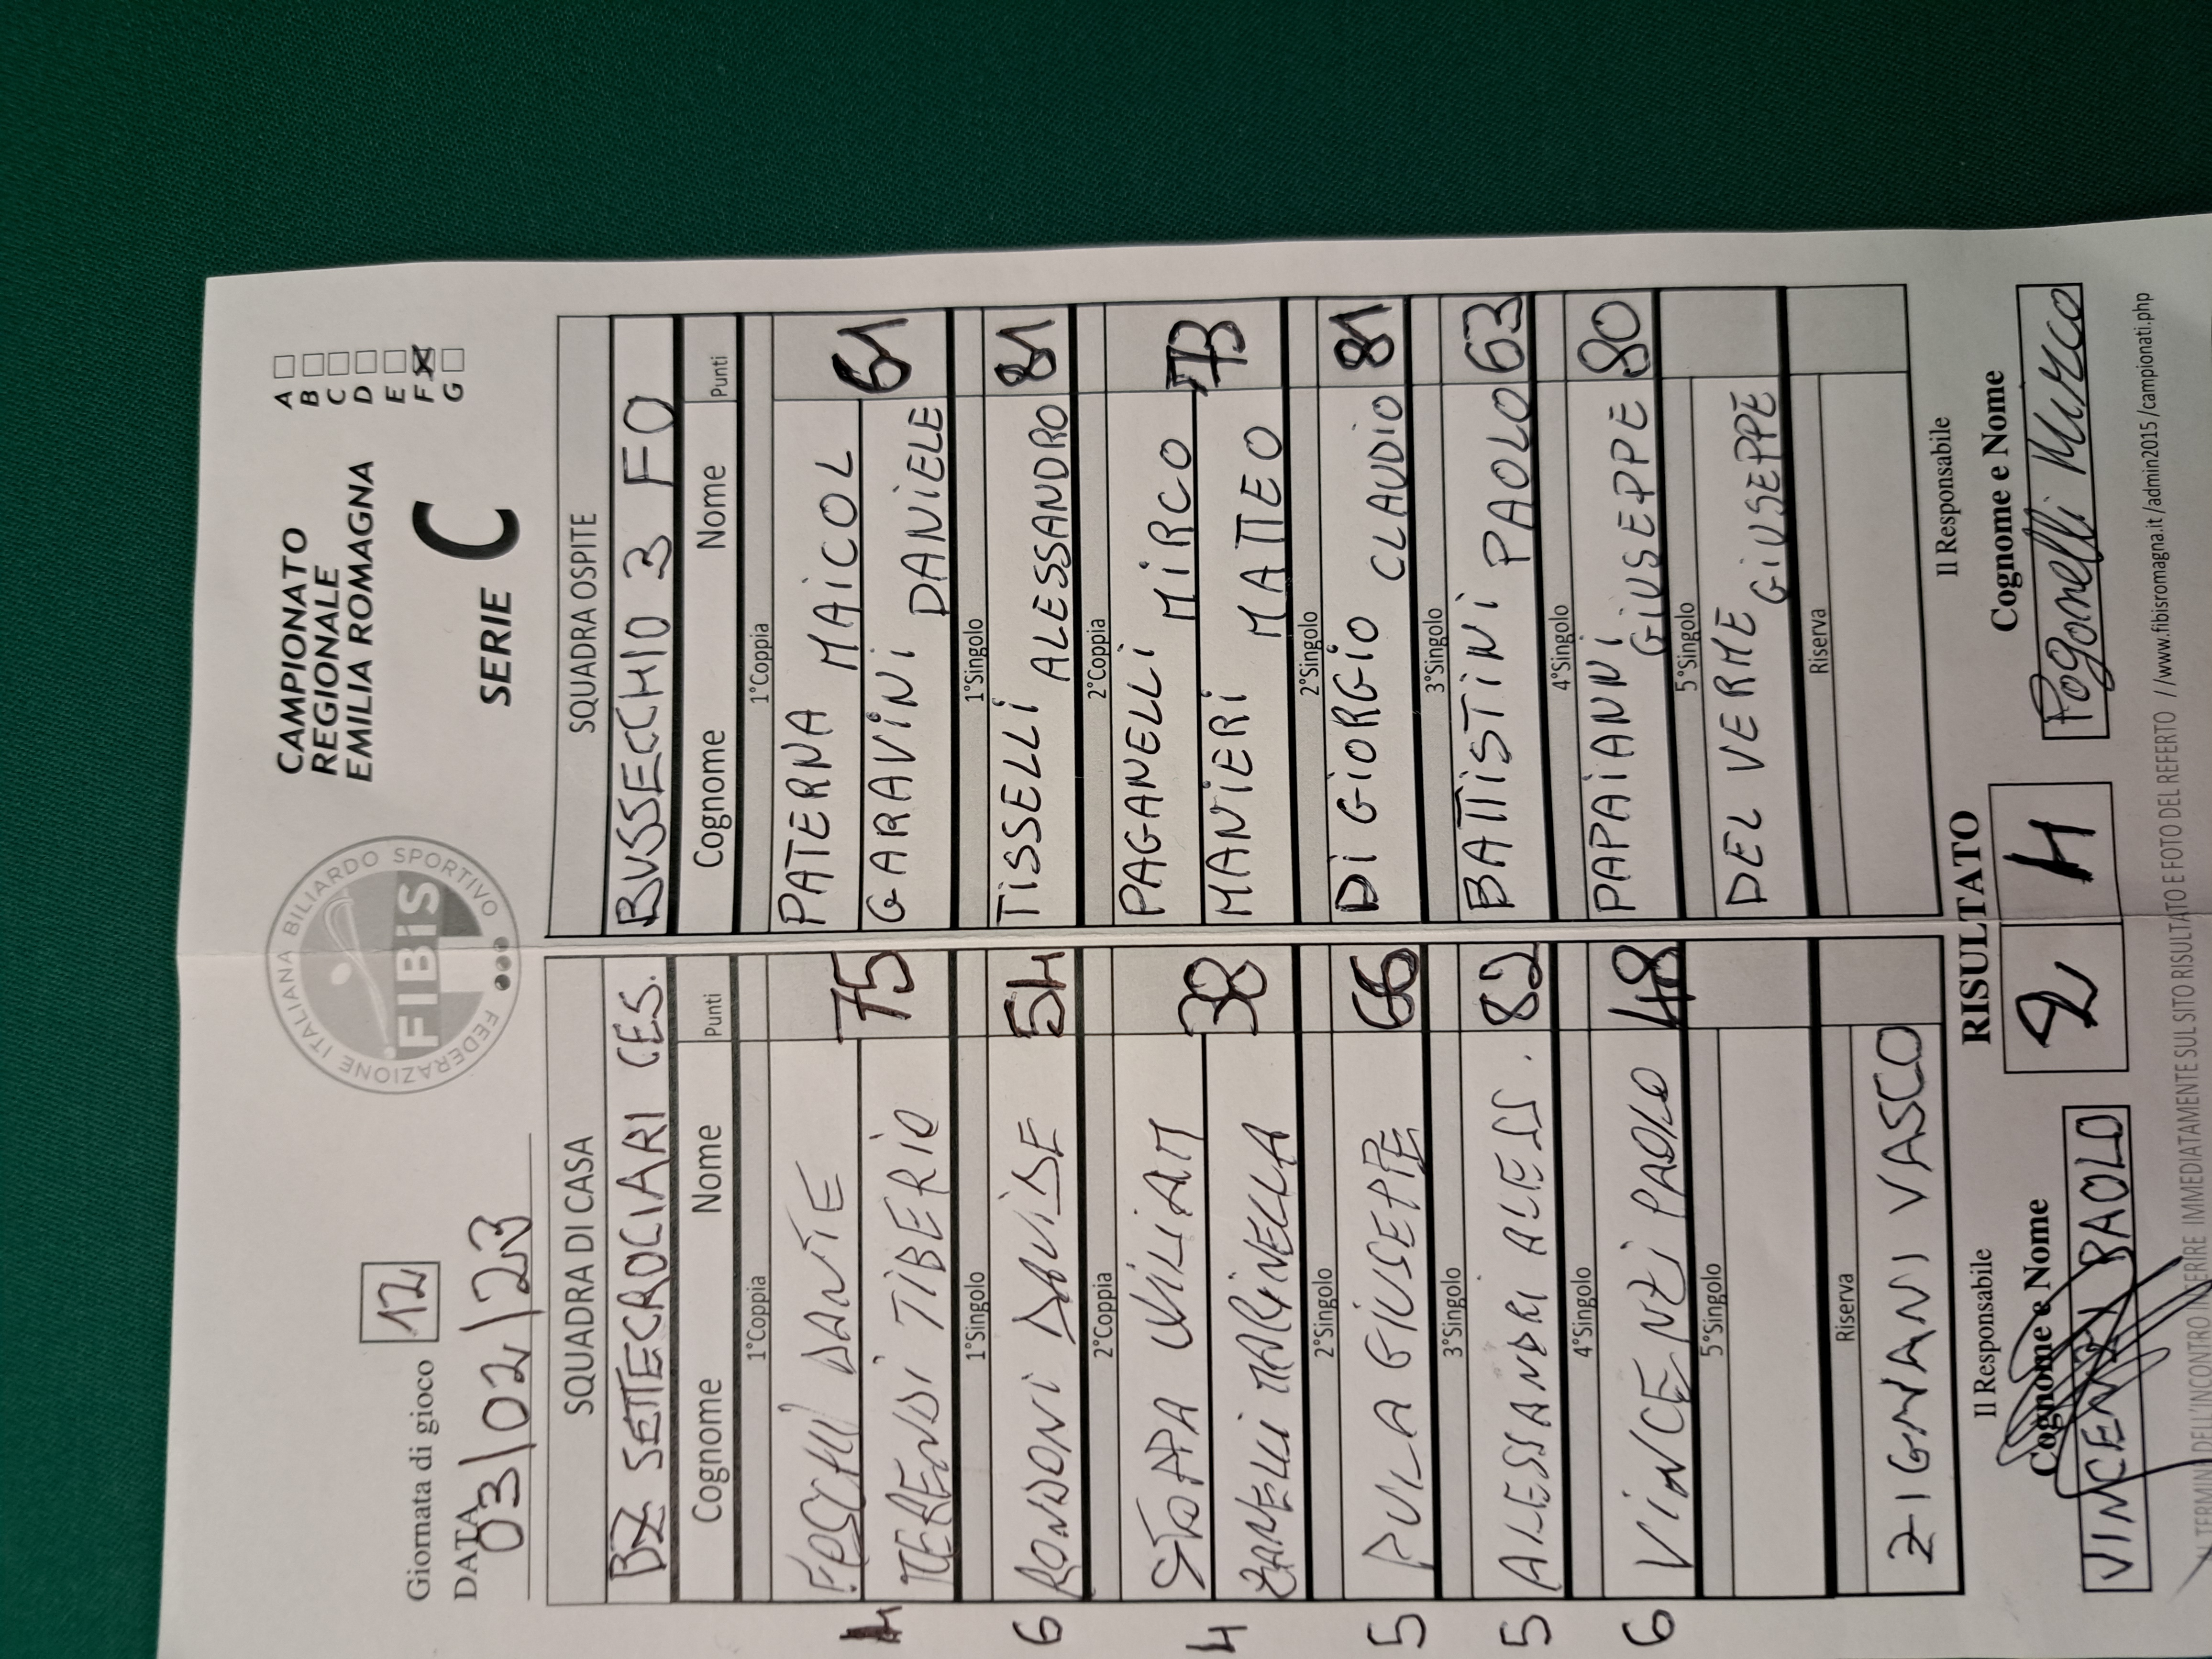 Giornata di gioco 12
DATA 03/02/23
FEDERAZIONE ITALIANA BILIARDO SPORTIVO
FIBiS
CAMPIONATO
REGIONALE
EMILIA ROMAGNA
SERIE C
A
B
C
D
E
F
G
SQUADRA DI CASA
BZ SETTECROCIARI CES.
Cognome Nome Punti
1°Coppia
DANTE
TIBERIO 75
4
1°Singolo
RONDONI DAVIDE 54
6
2°Coppia
WILIAM
ZANELLI MARINELLA 38
4
2°Singolo
PULA GIUSEPPE 66
5
3°Singolo
ALESSANDRI ALESS. 82
5
4°Singolo
VINCENZI PAOLO 48
6
5°Singolo
Riserva
ZIGNANI VASCO
SQUADRA OSPITE
BUSSECCHIO 3 FO
Cognome Nome Punti
1°Coppia
PATERNA MAICOL
GARAVINI DANIELE 61
1°Singolo
TISSELLI ALESSANDRO 81
2°Coppia
PAGANELLI MIRCO
MANIERI MATTEO 73
2°Singolo
DI GIORGIO CLAUDIO 81
3°Singolo
BATTISTINI PAOLO 63
4°Singolo
PAPAIANNI GIUSEPPE 80
5°Singolo
DEL VERME GIUSEPPE
Riserva
Il Responsabile
Cognome e Nome
VINCENZI PAOLO
RISULTATO
2 4
Il Responsabile
Cognome e Nome
Paganelli Mirco
TERMINE DELL'INCONTRO INSERIRE IMMEDIATAMENTE SUL SITO RISULTATO E FOTO DEL REFERTO //www.fibisromagna.it/admin2015/campionati.php